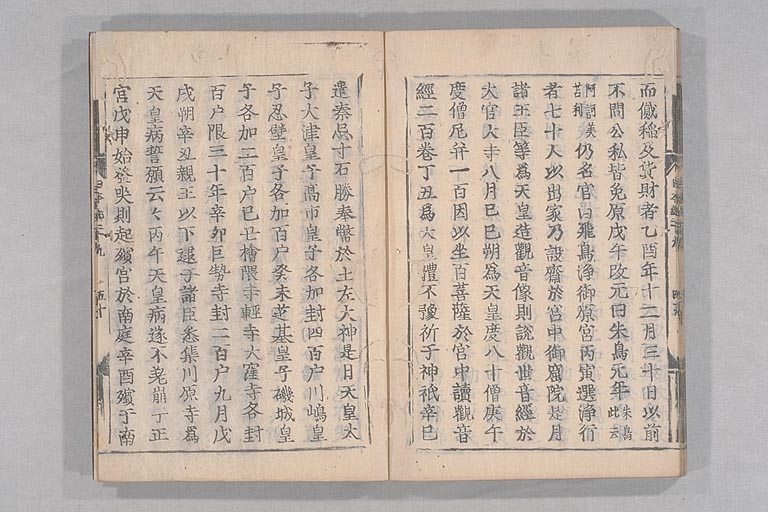 而儎稲及貨財者乙酉年十二月三十日以前
不問公私皆免原戊午改元曰朱鳥元年朱鳥此云
阿訶美苔利仍名宮曰飛鳥浄御原宮丙寅選浄行
者七十人以出家乃設齋於宮中御窟院是月
諸王臣等爲天皇造觀音像則說觀世音經於
大官大寺八月己巳朔爲天皇度八十僧庚午
度僧尼并一百因以坐百菩薩於宮中讀觀音
經二百卷丁丑爲天皇體不豫祈于神祇辛巳
遣秦忌寸石勝奉幣於土左大神是日天皇太
子大津皇子高市皇子各加封四百户川嶋皇
子忍壁皇子各加百户癸未芝基皇子磯城皇
子各加二百户己丑檜隈寺輕寺大窪寺各封
百户限三十年辛卯巨勢寺封二百户九月戊
戌朔辛丑親王以下逮于諸臣悉集川原寺爲
天皇病誓願云々丙午天皇病遂不差崩于正
宮戊申始發哭則起殯宮於南庭辛酉殯于南